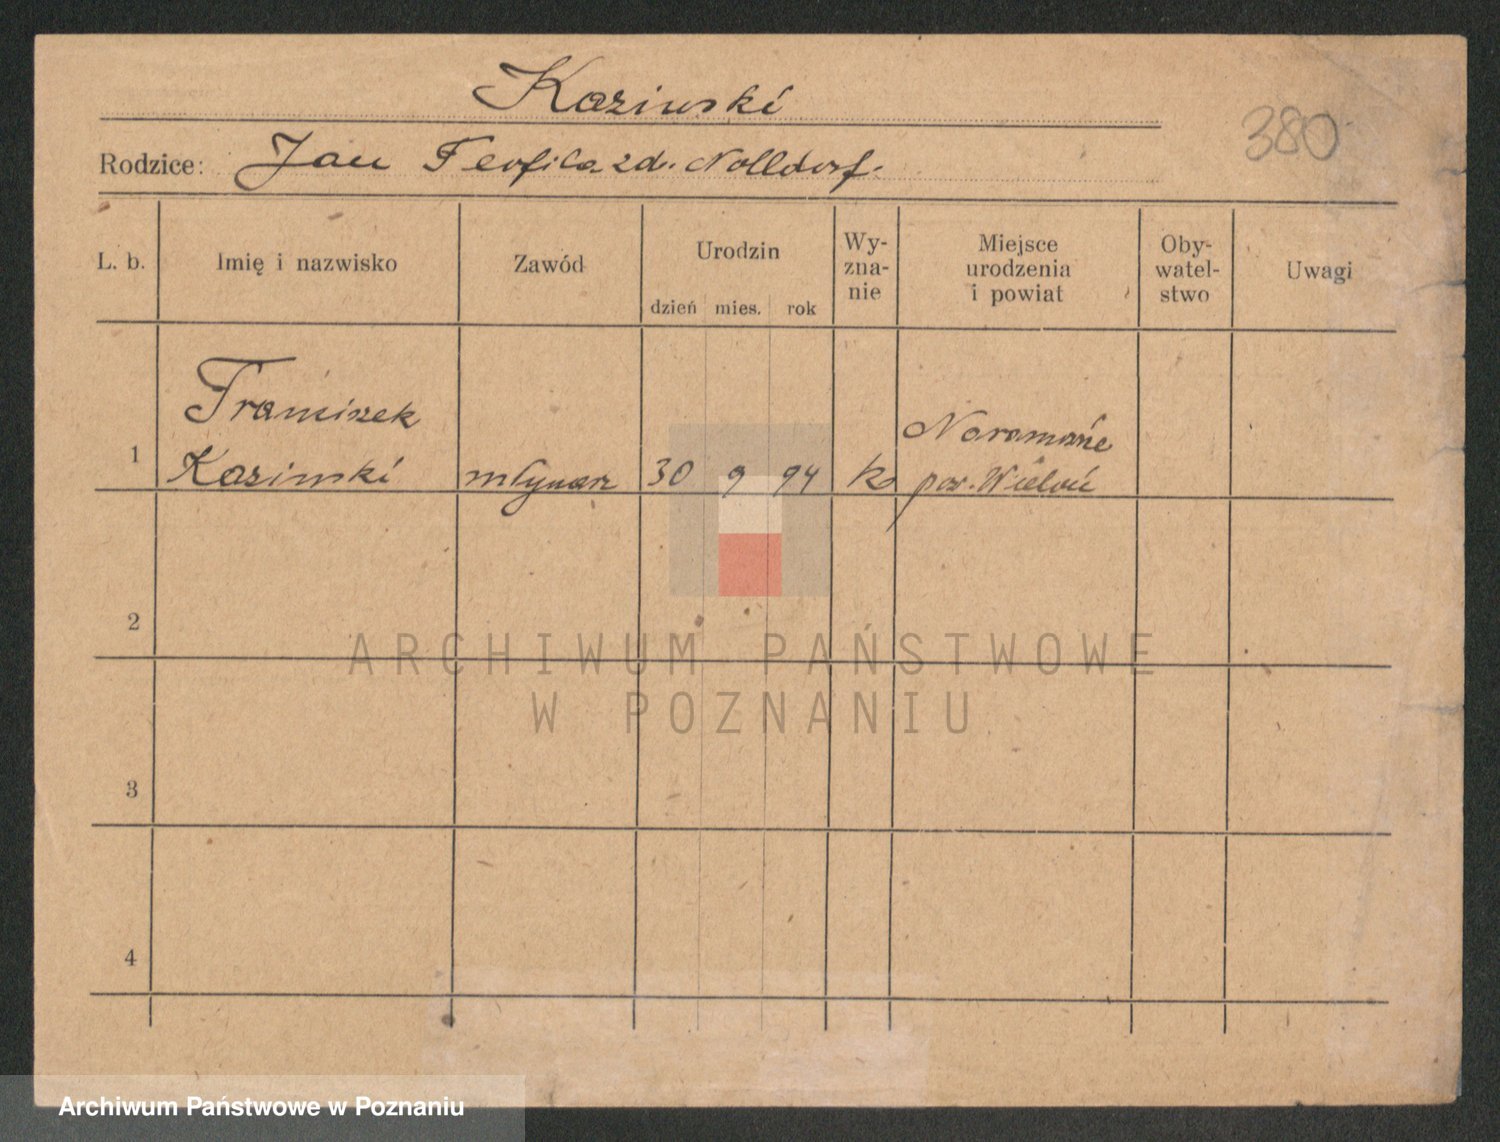 Kazimski
380
Rodzice: Jan Teofila zd. Nolldorf.
L. b. Imię i nazwisko Zawód Urodzin dzień mies. rok Wy-zna-nie Miejsce urodzenia i powiat Oby-watel-stwo Uwagi
Franciszek Naramnice
1 Kazimski młynarz 30 9 94 k pow. Wieluń
2
3
4
ARCHIWUM PAŃSTWOWE
W POZNANIU
Archiwum Państwowe w Poznaniu